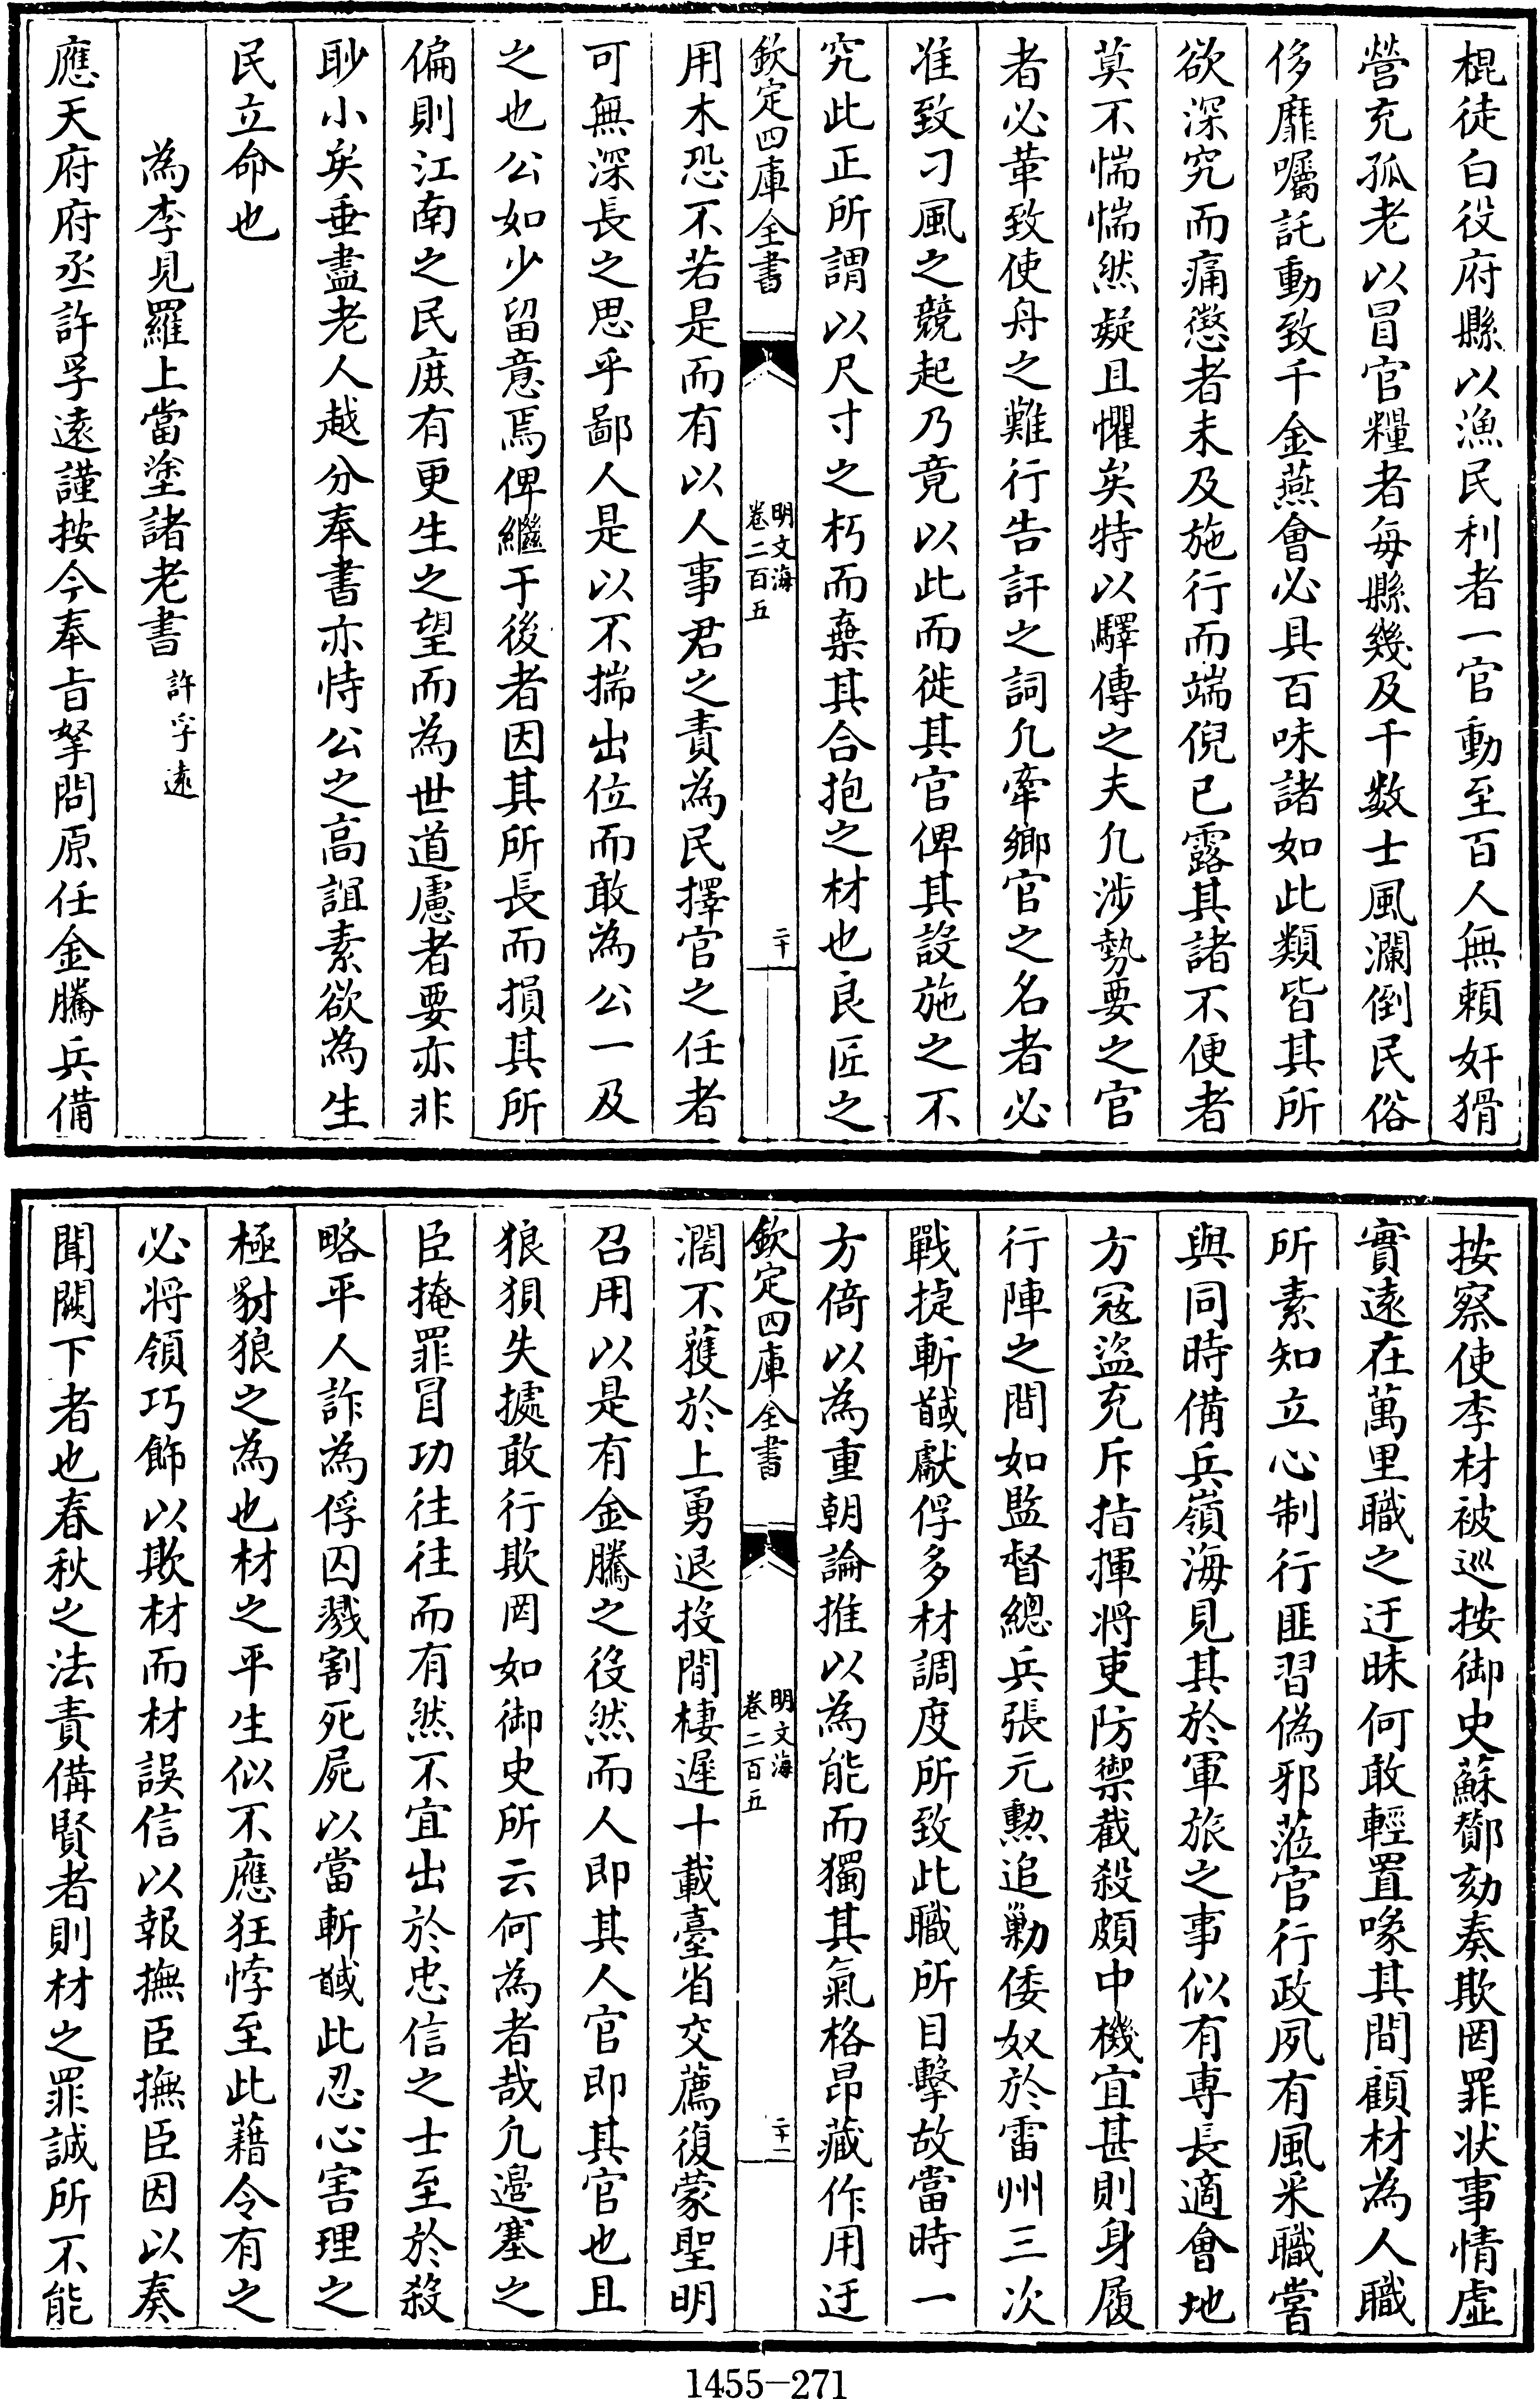 棍徒白役府縣以漁民利者一官動至百人無頼奸猾
營充孤老以冒官糧者每縣幾及千數士風瀾倒民俗
侈靡囑託動致千金燕會必具百味諸如此類皆其所
欲深究而痛懲者未及施行而端倪已露其諸不便者
莫不惴惴然疑且懼矣特以驛傳之夫凡涉勢要之官
者必革致使舟之難行告訐之詞凡牽鄉官之名者必
准致刁風之競起乃竟以此而徙其官俾其設施之不
究此正所謂以尺寸之朽而棄其合抱之材也良匠之
欽定四庫全書
明文海
卷二百五
二十
用木恐不若是而有以人事君之責為民擇官之任者
可無深長之思乎鄙人是以不揣出位而敢為公一及
之也公如少留意焉俾繼于後者因其所長而損其所
偏則江南之民庶有更生之望而為世道慮者要亦非
眇小矣垂盡老人越分奉書亦恃公之高誼素欲為生
民立命也
為李見羅上當塗諸老書 許孚遠
應天府府丞許孚遠謹按今奉㫖拏問原任金騰兵備
按察使李材被巡按御史蘇酇劾奏欺罔罪状事情虛
實遠在萬里職之迂昧何敢輕置喙其間顧材為人職
所素知立心制行匪習偽邪蒞官行政夙有風采職嘗
與同時備兵嶺海見其於軍旅之事似有專長適會地
方冦盜充斥指揮将吏防禦截殺頗中機宜甚則身履
行陣之間如監督總兵張元勲追勦倭奴於雷州三次
戰捷斬馘獻俘多材調度所致此職所目擊故當時一
方倚以為重朝論推以為能而獨其氣格昂藏作用迂
欽定四庫全書
明文海
卷二百五
二十一
濶不獲於上勇退投閒棲遲十載臺省交薦復蒙聖明
召用以是有金騰之役然而人即其人官即其官也且
狼狽失據敢行欺罔如御史所云何為者哉凡邊塞之
臣掩罪冒功往往而有然不宜出於忠信之士至於殺
略平人詐為俘囚戮割死屍以當斬馘此忍心害理之
極豺狼之為也材之平生似不應狂悖至此藉令有之
必将領巧飾以欺材而材誤信以報撫臣撫臣因以奏
聞闕下者也春秋之法責備賢者則材之罪誠所不能
1455-271